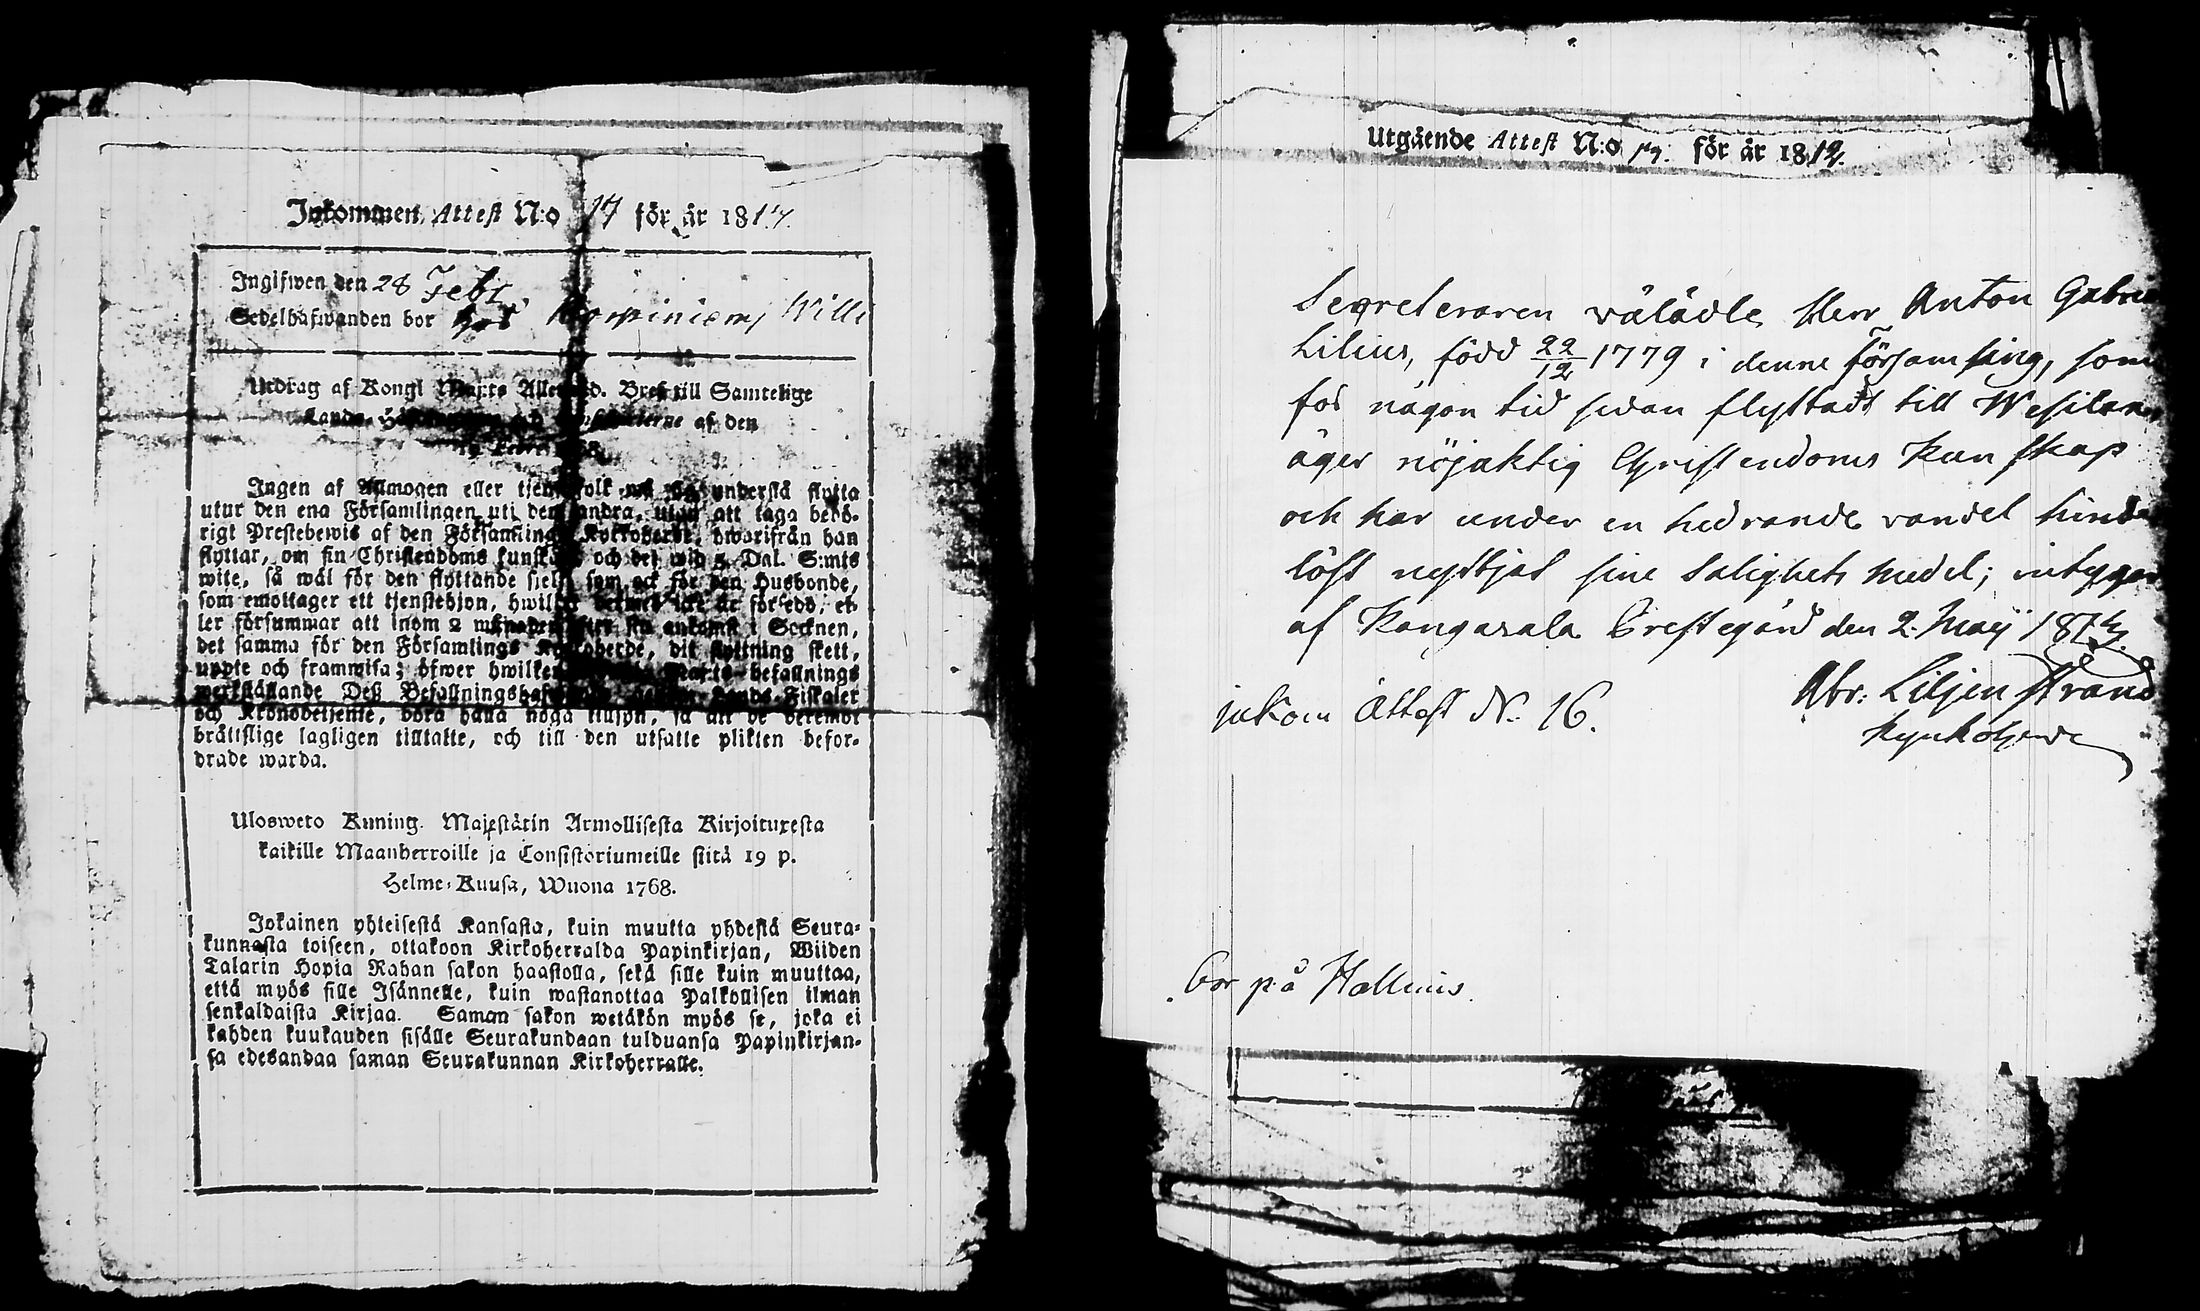 Inkommen Attest N:o 17 för år 1817.
Ingifwen den 28 Febr.
Sedelhafwanden bor hos Willi
Utdrag af Kongl Maj:ts Bref till Samtelige
af den
Ingen af Allmogen eller understå flytta
utur den ena Församlingen uti den andra, utan att taga behö-
rigt Prestebewis af den Församlings Kyrkoherde, hwarifrån han
flyttar, om sin Christendoms kunskap och det wid 5 Dal. S:mts
wite, så wäl för den flyttande sielf som ock för den Husbonde,
som emottager ett tjenstehjon, hwilket dermed icke är försedt, el-
ler försummar att inom 2 månader efter sin ankomst i Socknen,
det samma för den Församlings Kyrkoherde, dit flyttning skett,
uppte och framwisa; öfwer hwilken befallnings
werkställande Deß Befallningshafwande Lands-Fiskaler
och Kronobetjente, böra hafwa noga tillsyn, så att de deremot
bråttslige lagligen tilltalte, och till den utsatte plikten befor-
drade warda.
Ulosweto Kuning. Majestätin Armollisesta Kirjoituxesta
kaikille Maanherroille ja Consistoriumeille siitä 19 p.
Helme-Kuusa, Wuona 1768.
Jokainen yhteisestä Kansasta, kuin muutta yhdestä Seura-
kunnasta toiseen, ottakoon Kirkoherralda Papinkirjan, Wiiden
Talarin Hopia Rahan sakon haastolla, sekä sille kuin muuttaa,
että myös sille Isännelle, kuin wastanottaa Palkollisen ilman
senkaldaista Kirjaa. Saman sakon wetäkön myös se, joka ei
kahden kuukauden sisälle Seurakundaan tulduansa Papinkirjan-
sa edesandaa saman Seurakunnan Kirkoherralle.
Utgående Attest N:o 17. för år 181
Secreteraren välädle Herr Anton Gabriel
Lilius, född 22/12 1779 i denne församling, som
för någon tid sedan flyttadt till Wesilax
äger nöjaktig Christendoms Kunskap
och har under en hedrande vandel hinder
löst nyttjat sine Salighets medel; intygar
af Kangasala Prestegård den 2. Maij 181
Abr: Liljenstrand
Kyrkoherde
inkom Attest N. 16.
bor på Hallmis.